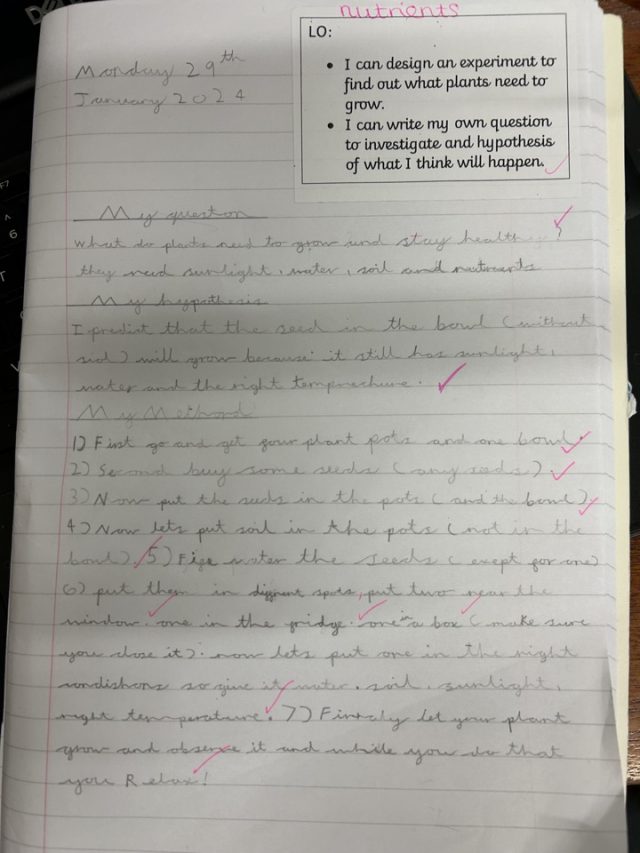 nutrients
LO:
• I can design an experiment to
find out what plants need to
grow.
• I can write my own question
to investigate and hypothesis
of what I think will happen.
Monday 29th
January 2024
My question
what do plants need to grow and stay health...?
they need sunlight, water, soil and nutreants
My hypothesis
I predict that the seed in the bowl (without
will grow because it still has sunlight,
water and the right
My Method
1) First go and get four plant pots and one bowl.
2) Second buy some seeds (any seeds).
3) Now put the seeds in the pots (and the bowl).
4) Now lets put soil in the pots (not in the
bowl). 5) water the seeds (exept for one)
6) put them in spots, put two near the
window. one in the fridge. one in a box (make sure
you close it). now lets put one in the right
condishons so give it water. soil. sunlight,
right temperature. 7) let your plant
grow and observe it and while you do that
you Relax!
F7
6